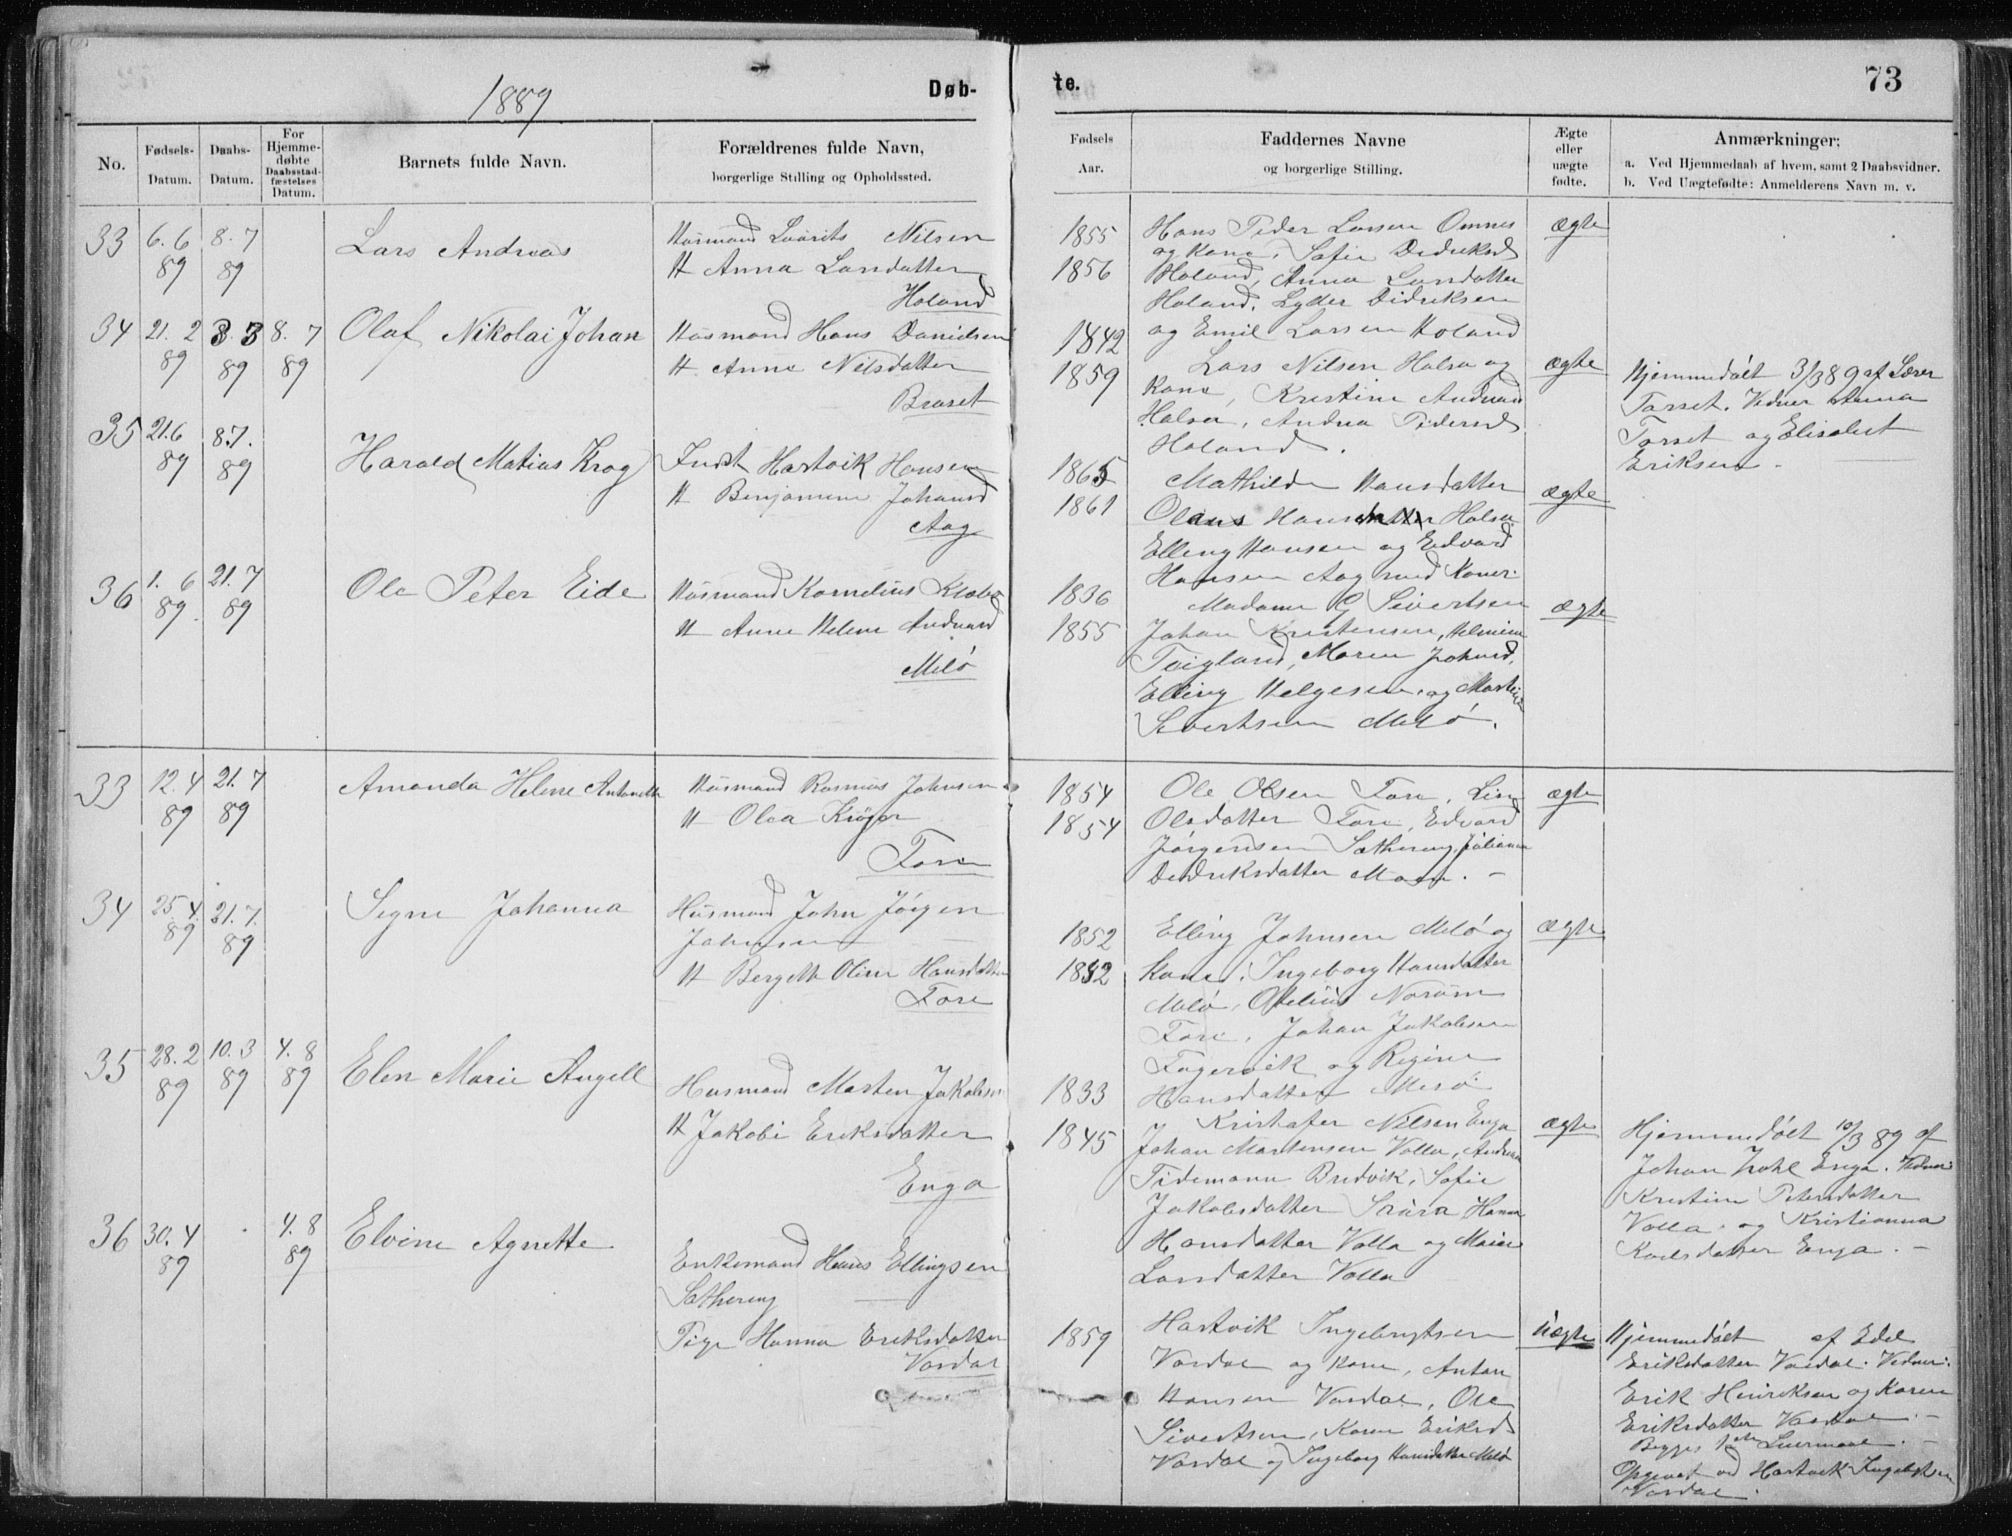 1889
Døb-
No.
Fødsels-
Datum.
Daabs-
Datum.
For
Hjemme-
døbte
Daabsstad-
fæstelses
Datum.
Barnets fulde Navn.
Forældrenes fulde Navn,
borgerlige Stilling og Opholdssted.
33 6.6 8.7 Lars Andreas Husmand Laurits Nilsen
89 89 H Anna Larsdatter
Holand
34 21.2 3.3 8.7 Olaf Nikolai Johan Husmand Hans Danielsen
89 89 89 H. Anne Nilsdatter
Braset
35 21.6 8.7. Harald Matias Krog Indst Hartvik Hansen
89 89 H Benjamine Johansd
Aag
36 1.6 21.7 Ole Peter Eide Husmand Kornelius
89. 89 H Anne Helene
Melö
33 12.4 21.7 Amanda Helene Antonette Husmand Rasmus Johnsen
89 89 H Olea Kröger
Fore
34 25.4. 21.7. Signe Johanna Husmand John Jörgen
89 89 Johnsen
H Bergette Oline Hansdatter
Fore
35 28.2 10.3 4.8 Elen Marie Angell Husmand Morten Jakobsen
89 89 89 H Jakobi Eriksdatter
Enga
36 30.4 4.8 Elvine Agnette Enkemand Hans Ellingsen
89 89 Sathereng
Pige Hanna Eriksdatter
Vardal
te.
73
Fødsels
Aar.
Faddernes Navne
og borgerlige Stilling.
Ægte
eller
uægte
fødte.
Anmærkninger:
a. Ved Hjemmedaab af hvem, samt 2 Daabsvidner.
b. Ved Uægtefødte: Anmelderens Navn m. v.
1855 Hans Peder Larsen Omnes ægte
og Kone, Sofie Dedriksd
1856 Holand, Anna Larsdatter
Holand, Lyder Didriksen
1842 og Emil Larsen Holand
Lars Nilsen Halsa og ægte Hjemmedöbt 3/3 89 af Lærer
1859 Kone, Kristine Andreasd Torset. Vidner Anna
Halsa, Andrea Pedersd Torset og Elisabet
Holand. Eriksen.
1865 Mathilde Hansdatter ægte
1861 Hansdatter Halsa
Elling Hansen og Edvard
Hansen Aag med Koner.
1836 Madame G Sivertsen ægte
1855 Johan Kristensen,
Teigland, Maren Johnsd,
Elling Helgesen og Martine
Sivertsen Melö.
1854 Ole Olsen Fore, Lise ægte
1854 Olsdatter Fore, Edvard
Jörgensen Sathereng, Juliana
Dedriksdatter
1852 Elling Johnsen Melö og ægte
1852 Kone, Ingeborg Hansdatter
Melö, Norum
Fore, Johan Jakobsen
Fagervik og Regine
1833 Hansdatter Melö.
Kristofer Nilsen Enga ægte Hjemmedöbt 10/3 89 af
1845 Johan Mortensen Volla, Andreas Johan Enga. Vidner
Tidemann Bredvik, Sofie Kristine Petersdatter
Jakobsdatter Hanna Volla og Kristianna
Hansdatter Volla og Karlsdatter Enga.
Larsdatter Volla
1859 Hartvik Ingebrigtsen Uægte Hjemmedöbt af Edel
Vardal og Kone, Anton Eriksdatter Vardal. Vidner:
Hansen Vardal, Ole Erik Henriksen og Karen
Sivertsen, Karen Eriksd Eriksdatter Vardal.
Vardal og Ingeborg Hansdatter Melö Begges Leiermaal.
Opgivet ved Hartvik Ingebrigtsen
Vardal.